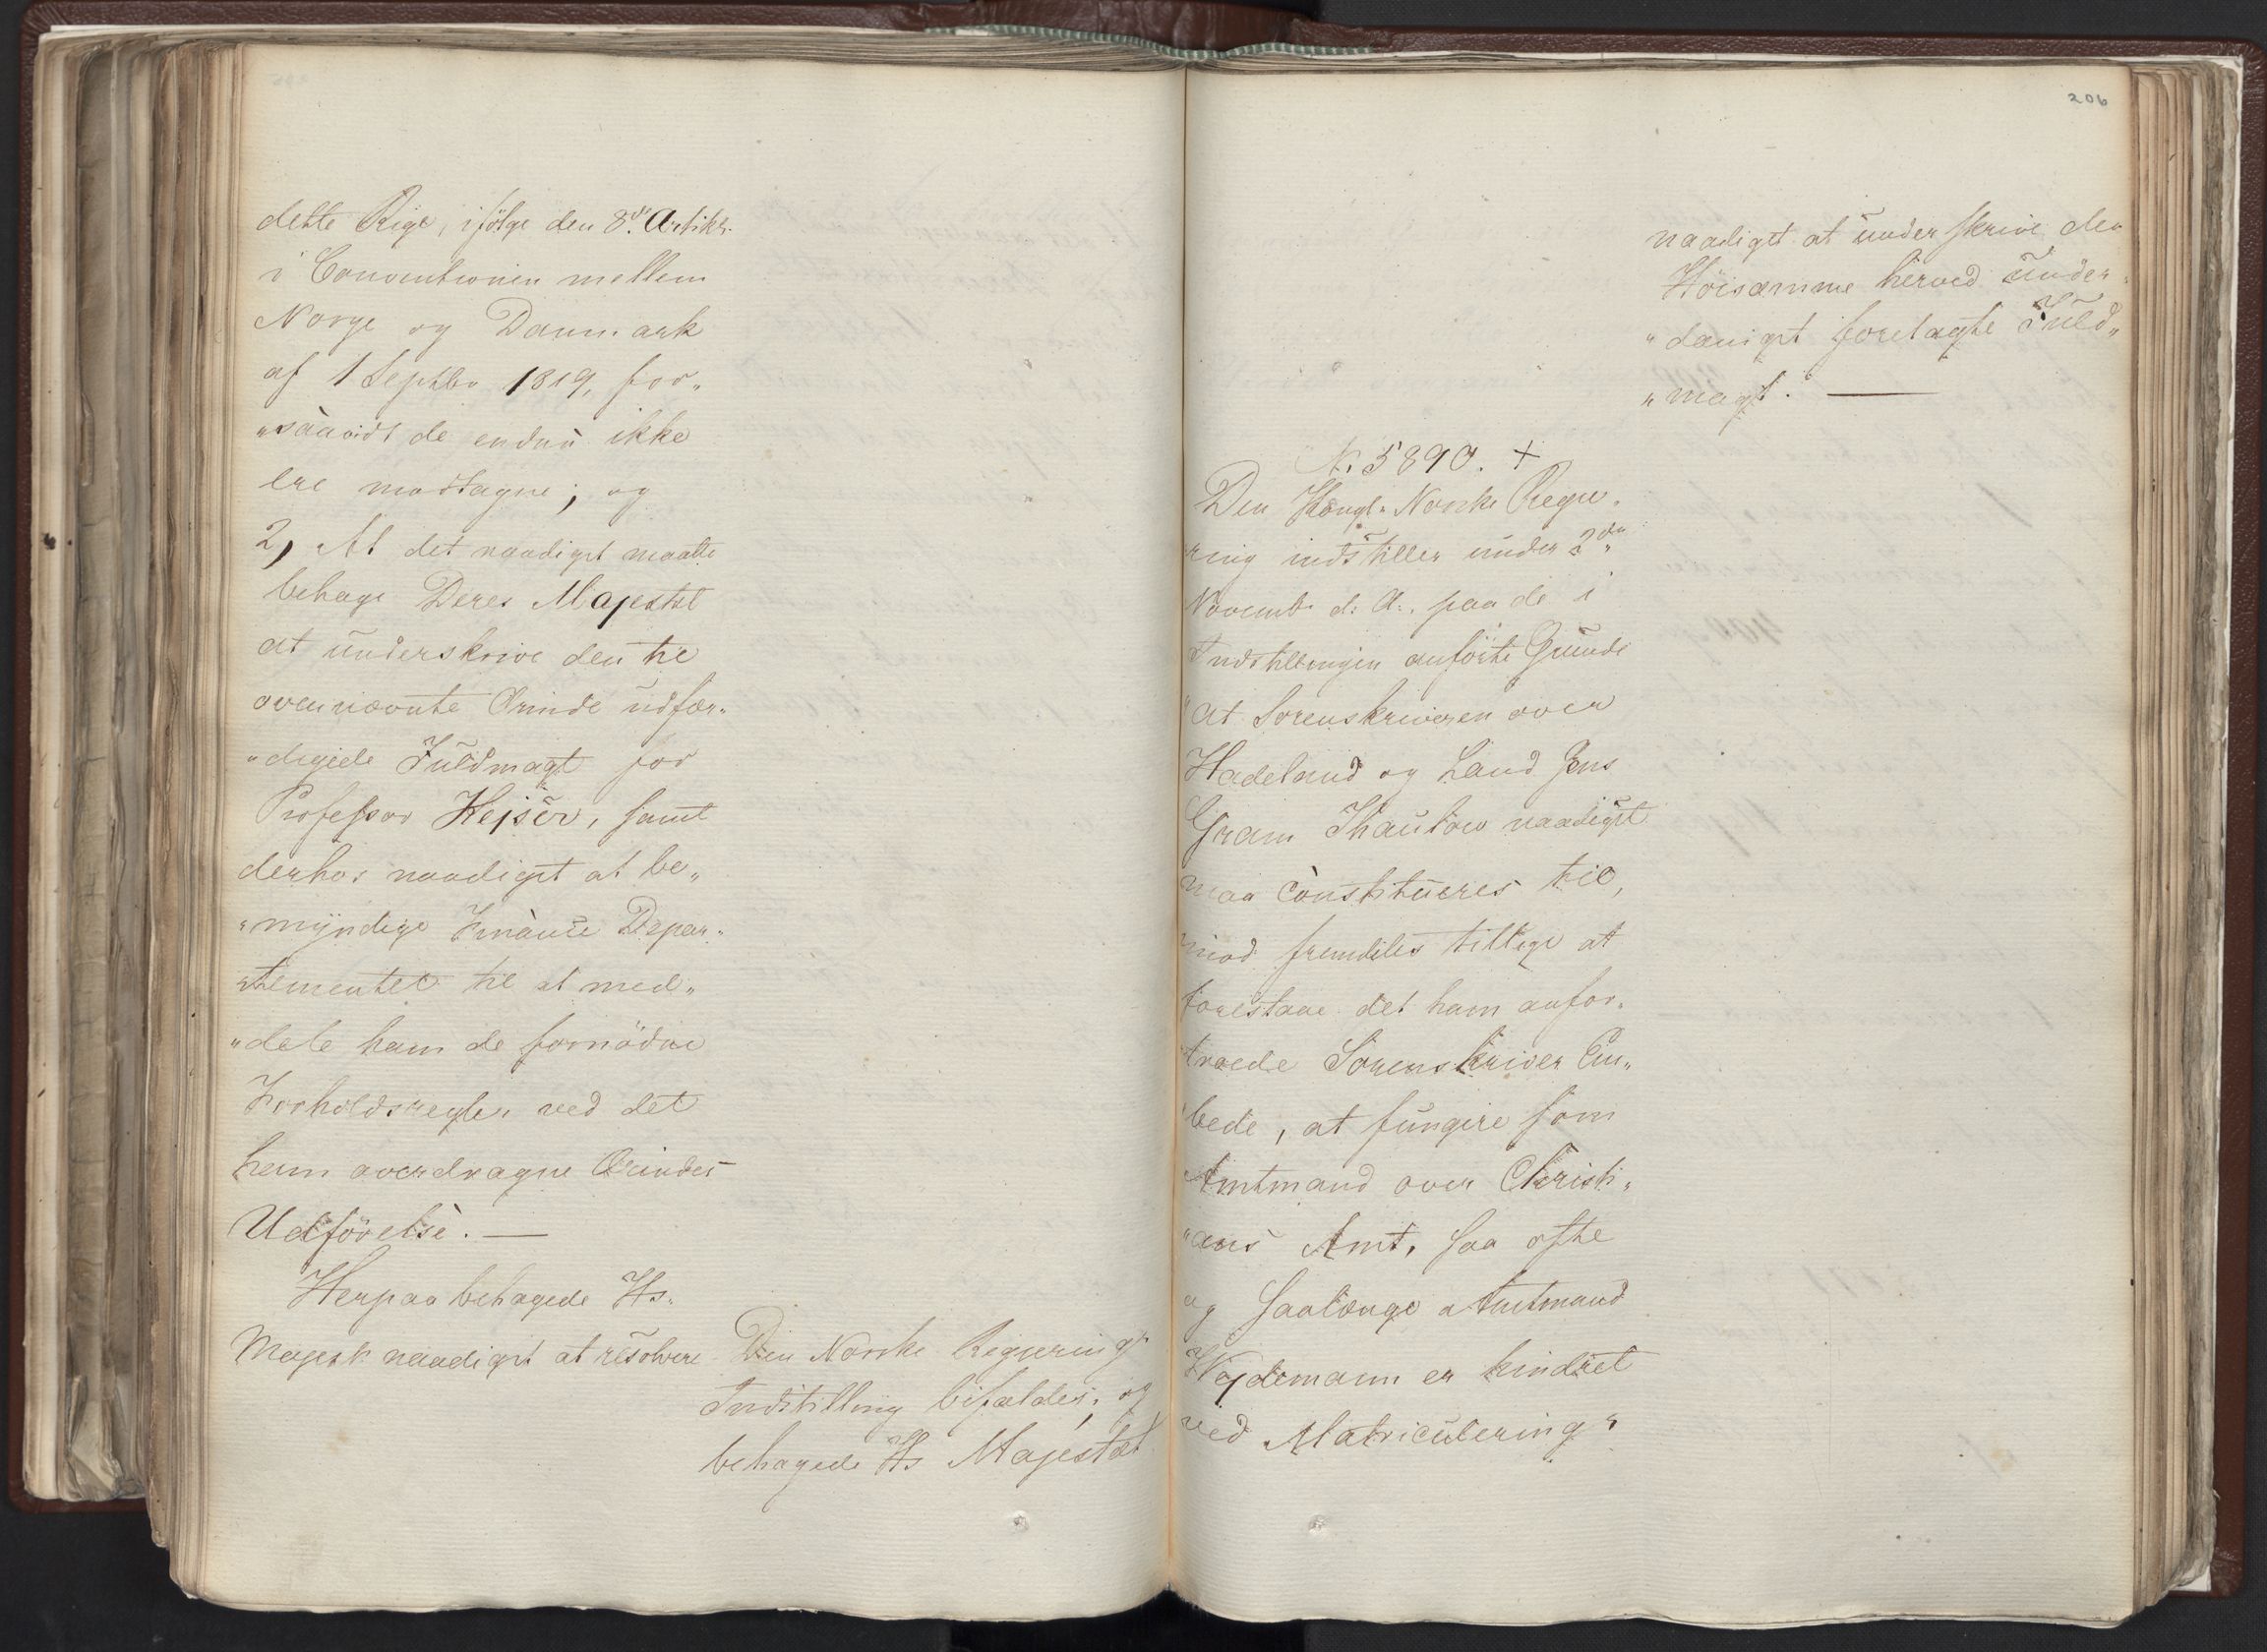 dette Rige, ifölge den 8de Artikl.
i Conventionen mellem
Norge og Danmark
af 1 Septbr 1819, for„
„saavidt de endnu ikke
ere modtagne; og
2, At det naadigst maatte
behage Deres Majestæt
at underskrive den til
ovennævnte Ærinde udfær„
„digede Fuldmagt for
Professor Keiser, samt
derhos naadigst at be„
„myndige Finance Depar„
„tementet til at med„
„dele ham de fornödne
Forholdsregler ved det
ham overdragne Ærindes
Udförelse. —
Herpaa behagede Hs.
Majestt naadigst at resolvere
Den Norske Regjerings
Indstilling bifaldes; og
behagede Hs Majestæt
206
naadigst at underskrive den
Höisamme herved under„
„danigst forelagte Fuld„
„magt. —
N. 5890. +
Den Kongl. Norske Regje„
ring indstiller under 2den
Novemb. d. A., paa de i
Indstillingen anförte Grunde
"At Sorenskriveren over
Hadeland og Land Jens
Gram Thaulow naadigst
maa constitueres til,
mod fremdeles tillige at
forestaae det ham anfor„
„troede Sorenskriver Em„
„bede, at fungere som
Amtmand over Christi„
„ans Amt, saa ofte
og saalænge Amtmand
Weidemann er hindret
ved Matriculerings